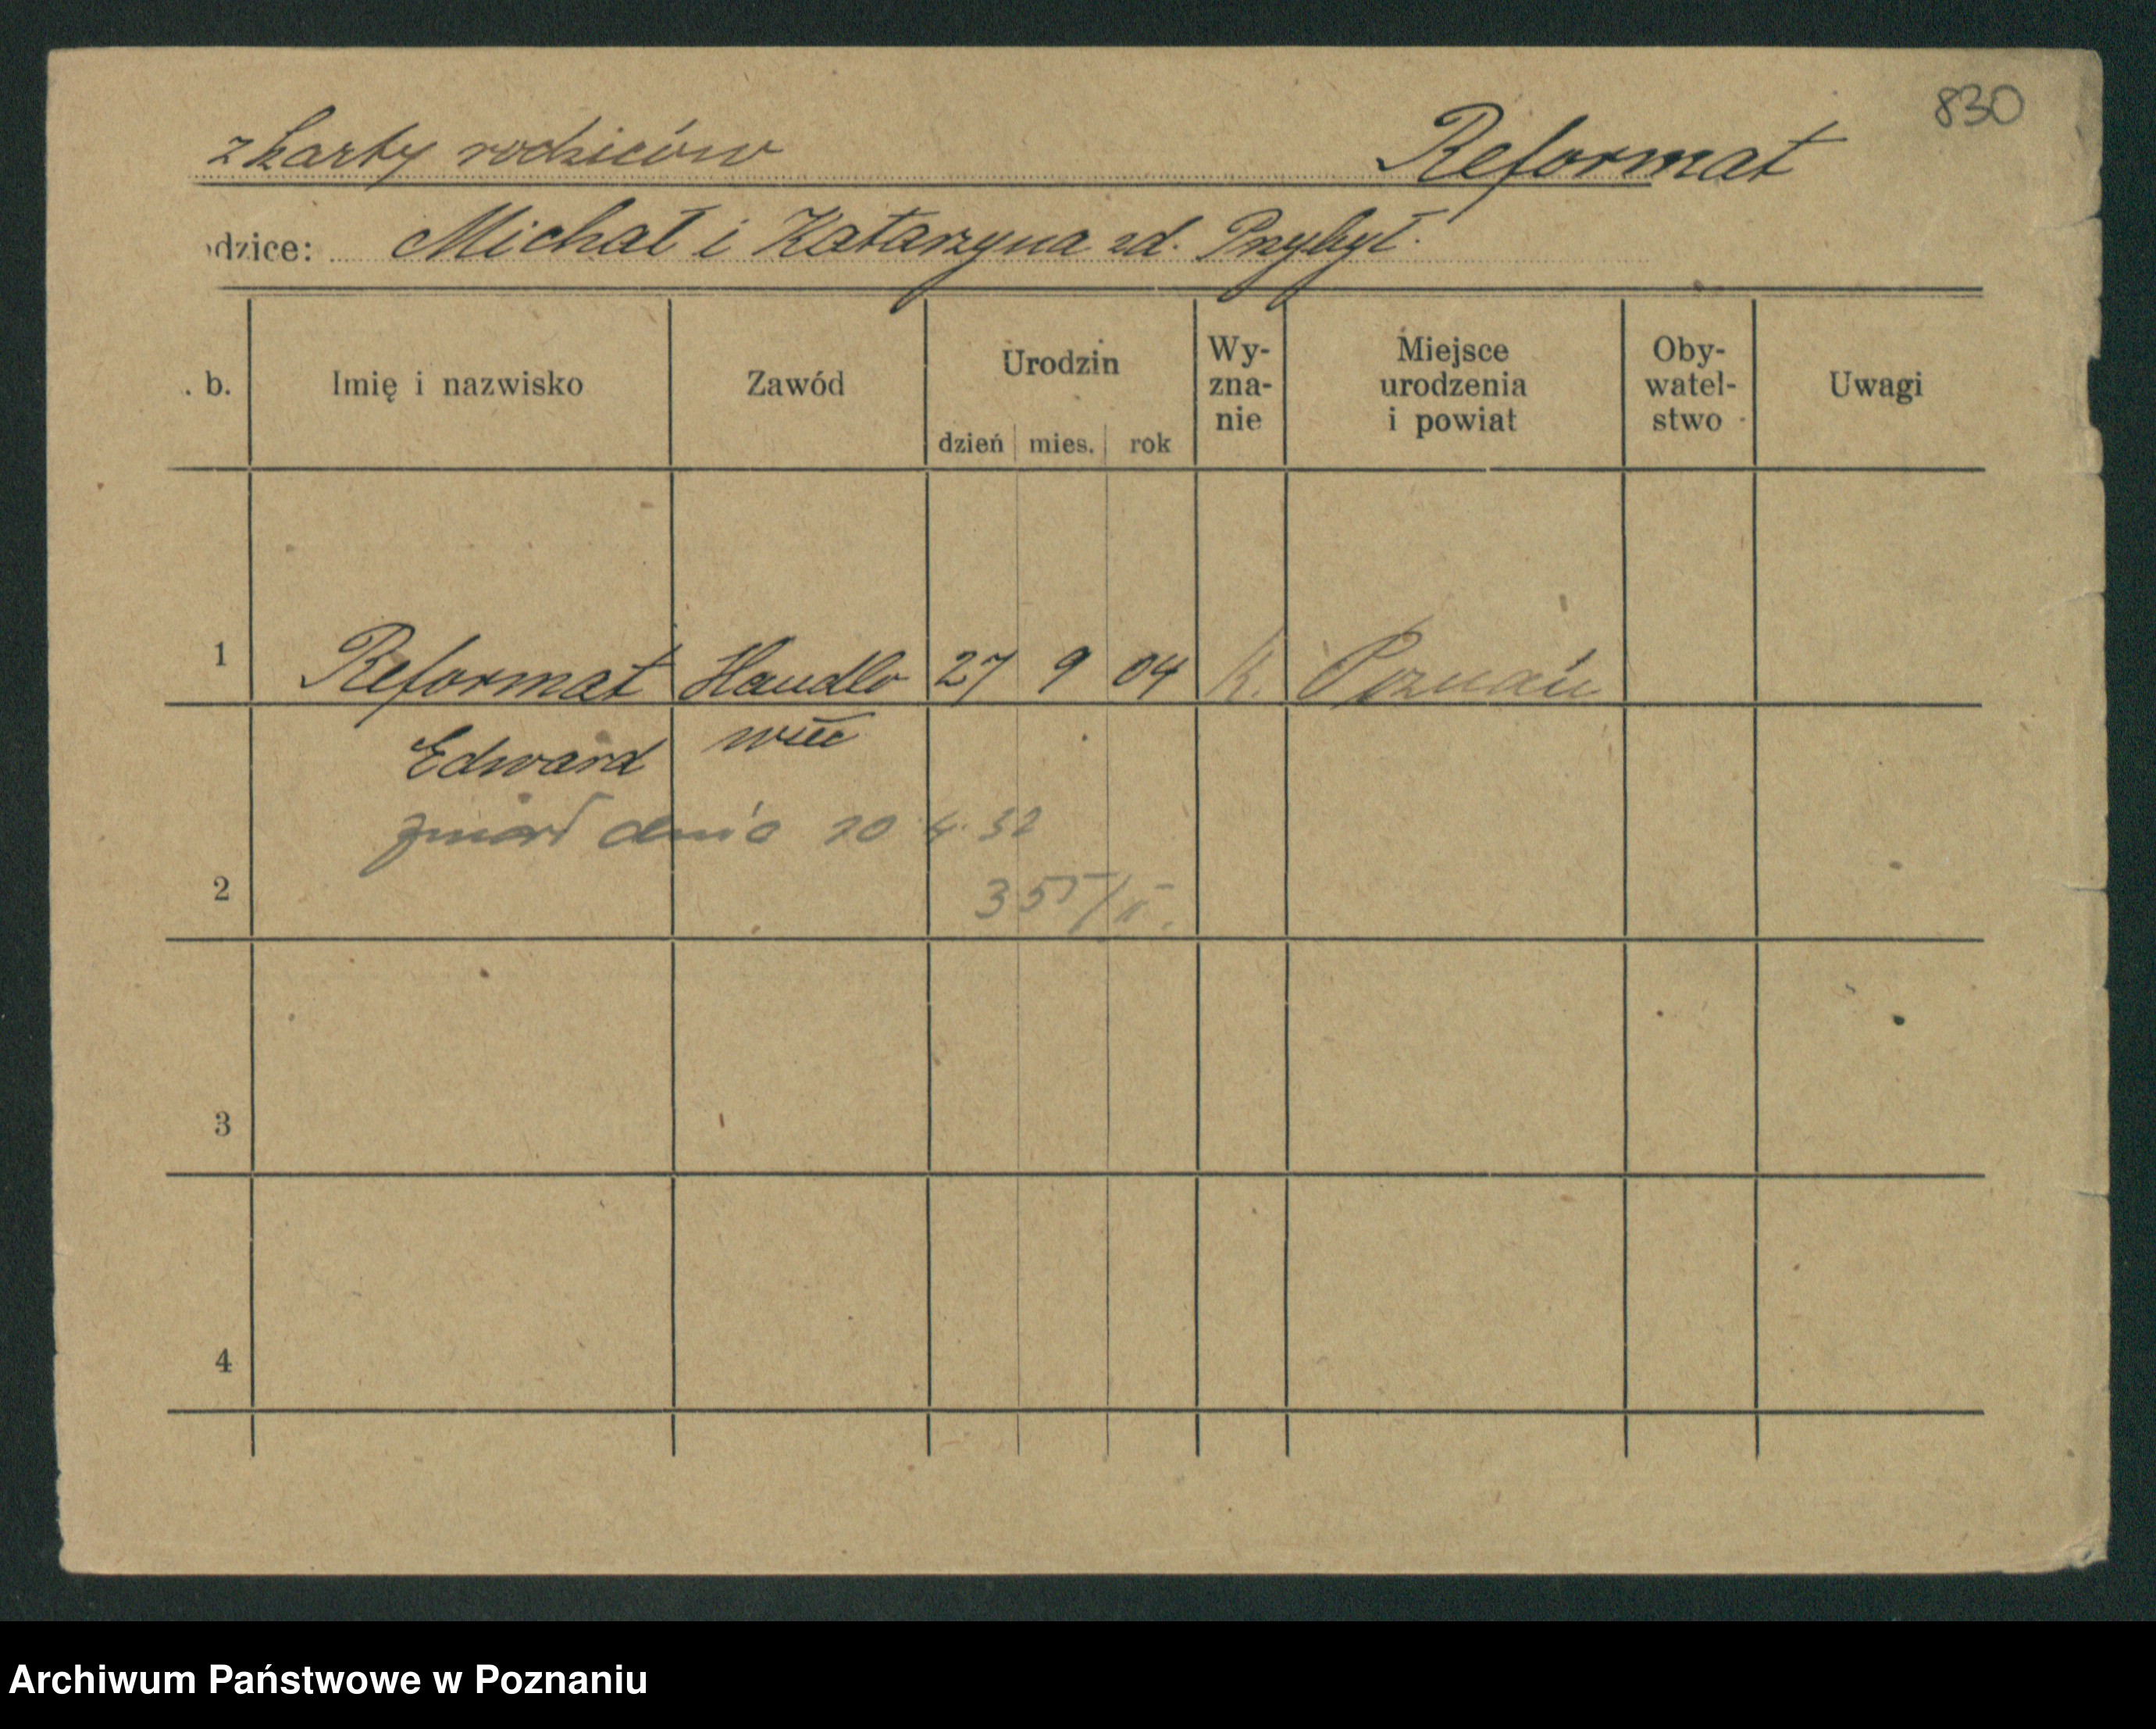 830
z karty rodziców Reformat
odzice: Michał i Katarzyna zd. Przybył.
. b. Imię i nazwisko Zawód Urodzin dzień mies. rok Wy-zna-nie Miejsce urodzenia i powiat Oby-watel-stwo Uwagi
1 Reformat Handlo 27 9 04 k. Poznań
Edward wiec
zmarł dnia 20.4.32
2 355/II.
3
4
Archiwum Państwowe w Poznaniu